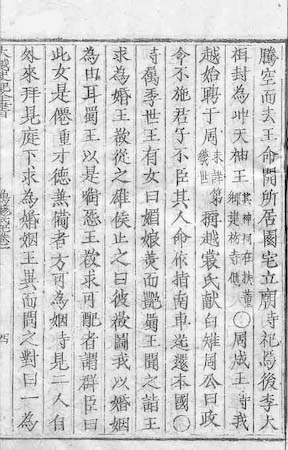 騰空而去王命開所居園宅立廟寺祀焉後李太
祖封為冲天神王其神祠在扶董鄉建初寺側○周成王寺我
越始聘于周未詳第幾世稱越裳氏献白雉周公曰政
令不施君子不臣其人命作指南車送還本國○
寺屬季世王有女曰媚娘美而艷蜀王聞之詣王
求為婚王欲從之雄候止之曰彼欲圖我以婚姻
為由耳蜀王以是啣怨王欲求可配者謂群臣曰
此女是僊種才德兼備者方可為姻寺見二人自
外來拜見庭下求為婚姻王異而問之對曰一為